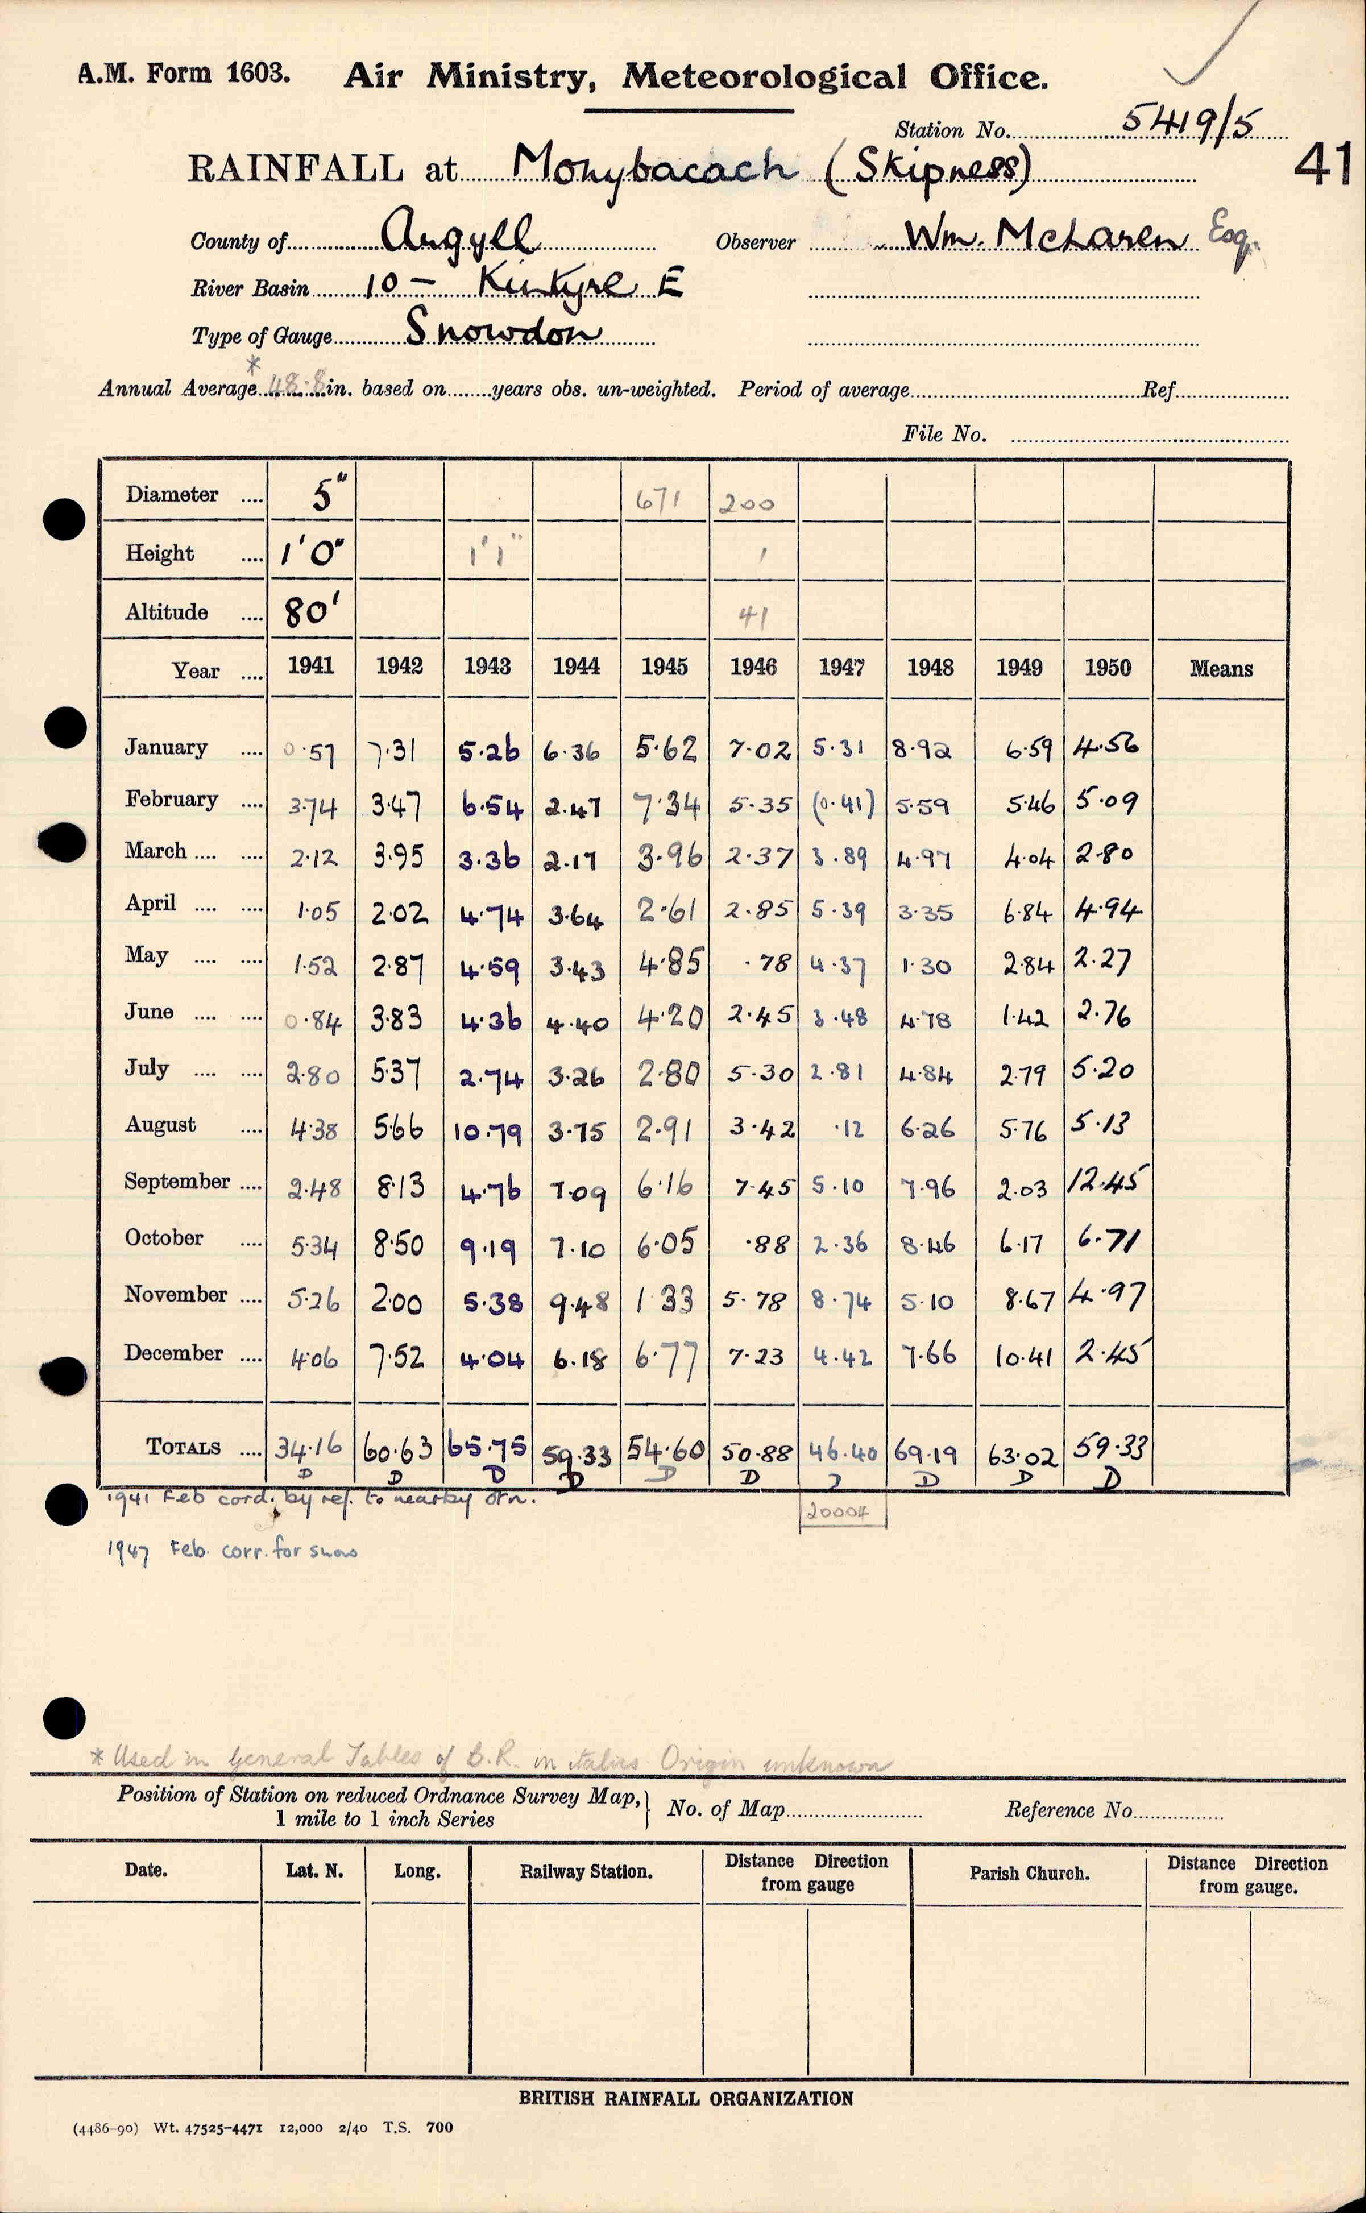 A.M. Form 1603. Air Ministry, Meteorological Office.
Station No. 5419/5
RAINFALL at Monybacach (Skipness) 41
County of Argyll Observer Wm. McLaren Esq.
River Basin 10 — Kintyre E
Type of Gauge Snowdon
Annual Average * 48.8 in. based on ........ years obs. un-weighted. Period of average ........ Ref ........
File No. ........
Diameter .... 5" 671 200
Height .... 1'0" 1'1" 1
Altitude .... 80' 41
Year .... 1941 1942 1943 1944 1945 1946 1947 1948 1949 1950 Means
January .... 0.57 7.31 5.26 6.36 5.62 7.02 5.31 8.92 6.59 4.56
February .... 3.74 3.47 6.54 2.47 7.34 5.35 (0.41) 5.59 5.46 5.09
March .... .... 2.12 3.95 3.36 2.17 3.96 2.37 3.89 4.97 4.04 2.80
April .... .... 1.05 2.02 4.74 3.64 2.61 2.85 5.39 3.35 6.84 4.94
May .... .... 1.52 2.87 4.59 3.43 4.85 .78 4.37 1.30 2.84 2.27
June .... .... 0.84 3.83 4.36 4.40 4.20 2.45 3.48 4.78 1.42 2.76
July .... .... 2.80 5.37 2.74 3.26 2.80 5.30 2.81 4.84 2.79 5.20
August .... 4.38 5.66 10.79 3.75 2.91 3.42 .12 6.26 5.76 5.13
September .... 2.48 8.13 4.76 7.09 6.16 7.45 5.10 7.96 2.03 12.45
October .... 5.34 8.50 9.19 7.10 6.05 .88 2.36 8.46 6.17 6.71
November .... 5.26 2.00 5.38 9.48 1.33 5.78 8.74 5.10 8.67 4.97
December .... 4.06 7.52 4.04 6.18 6.77 7.23 4.42 7.66 10.41 2.45
TOTALS .... 34.16 60.63 65.75 59.33 54.60 50.88 46.40 69.19 63.02 59.33
D D D D D D D D D D
1941 Feb cord. by ref. to nearby stn. 20004
1947 Feb. corr. for snow
* Used in General Tables of B.R. in italics Origin unknown
Position of Station on reduced Ordnance Survey Map,} No. of Map ........ Reference No ........
1 mile to 1 inch Series
Date. Lat. N. Long. Railway Station. Distance Direction from gauge Parish Church. Distance Direction from gauge.
BRITISH RAINFALL ORGANIZATION
(4486-90) Wt. 47525-4471 12,000 2/40 T.S. 700